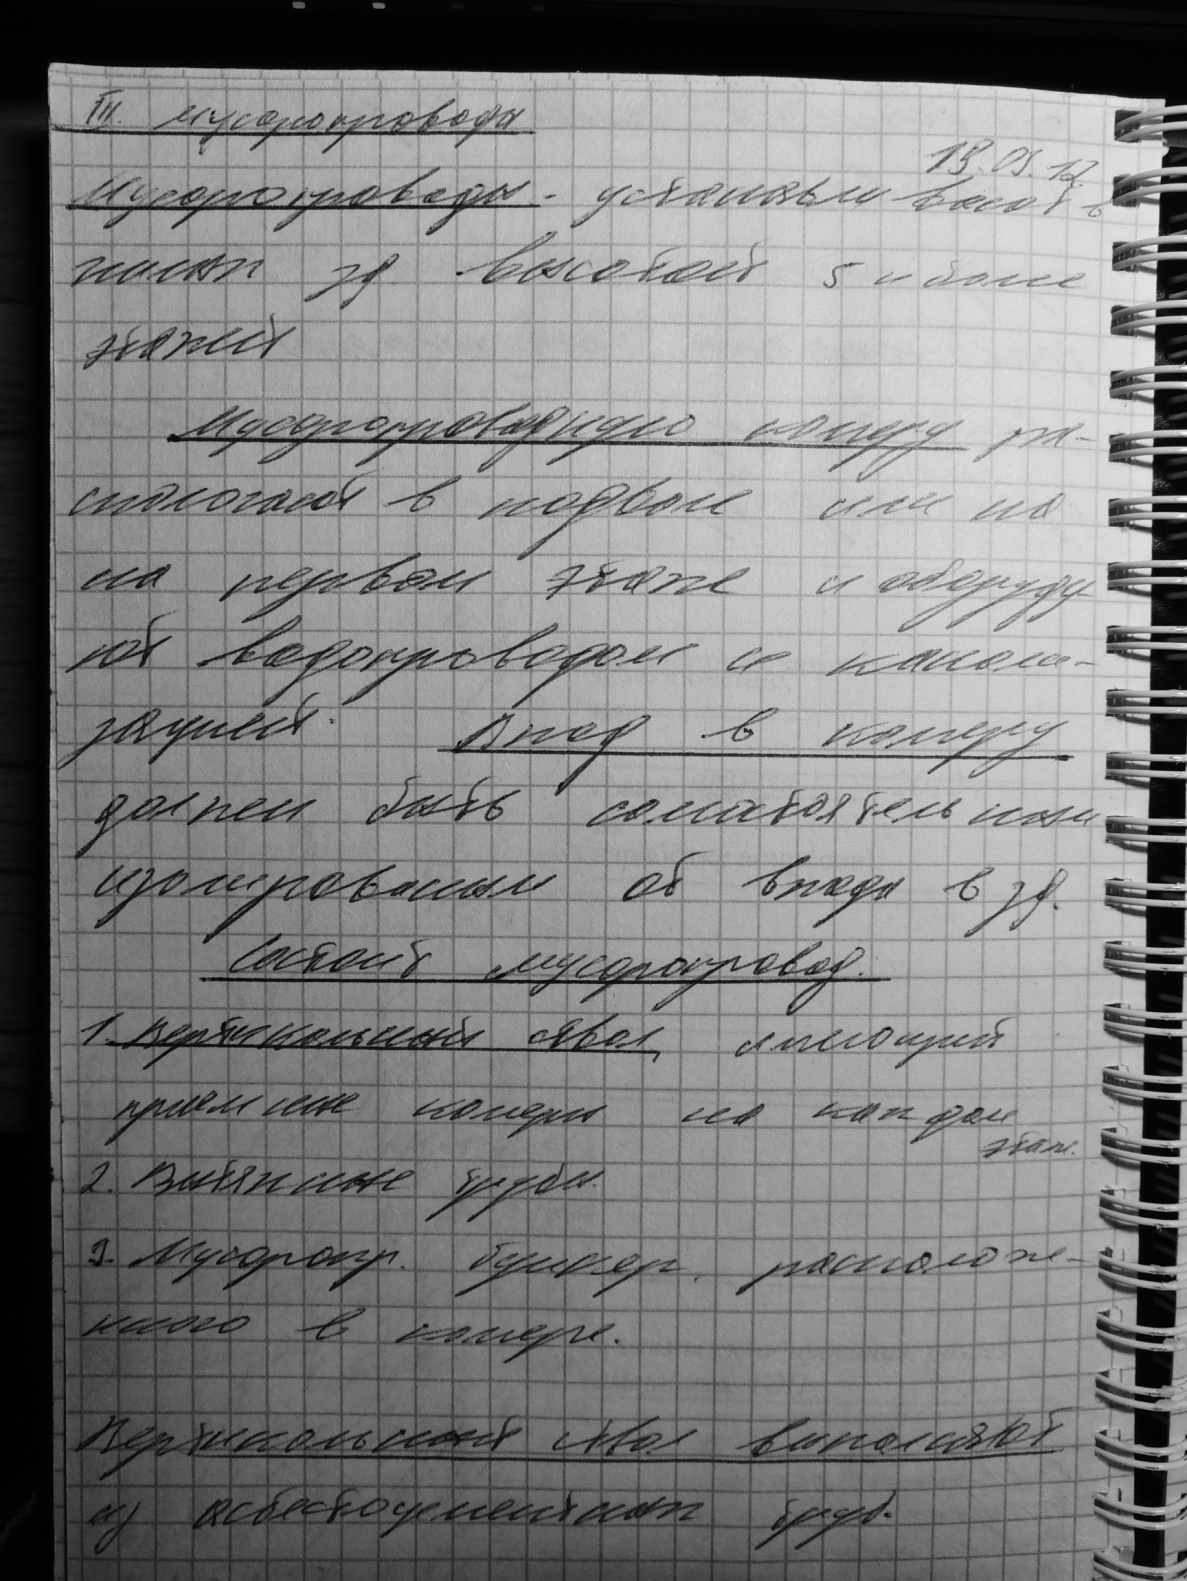 III. Мусоропроводы
19.09.12.
Мусоропроводы - устанавливают в
жилых зд. высотой 5 и более
этажей
Мусоропроводную камеру ра-
сполагают в подвале или на
на первом этаже и оборуду
ют водопроводом и канали-
зацией. Вход в камеру
должен быть самостоятельным
изолированным от входа в зд.
Состоит мусоропровод.
1. Вертикальный ствол, имеющий
приемные камеры на каждом
этаж.
2. Вытяжные трубы.
3. Мусоропр. бункер. расположе-
нного в камере.
Вертикальный ствол выполняют
из асбестоцементных труб.